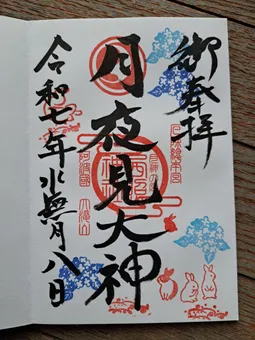 御奉拝
月夜見大神
令和七年水無月八日